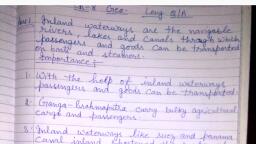 Ch-8 Geo. Long Q/A
Ans1. Inland waterways are the navigable
rivers, lakes and canals through which
passengers and goods can be transported
on boats and steamers.
Importance :-
1. With the help of inland waterways
passengers and goods can be transported.
2. Ganga-Brahmaputra carry bulky agricultural
cargo and passengers.
3. Inland waterways like suez and panama
Canal inland shortened